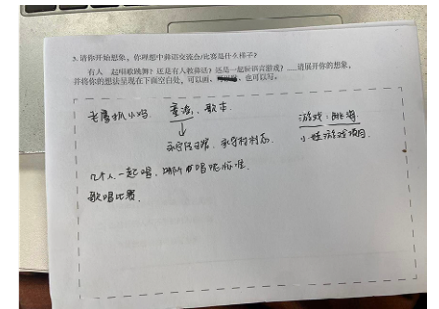 3. 请你开始想象,你理想中彝语交流会/比赛是什么样子?
有人一起唱歌跳舞?还是有人教彝语?还是一起听语言游戏?......请展开你的想象,
并将你的想法呈现在下面空白处,可以画,也可以写。
老鹰抓小鸡 童谣、歌本
游戏:跳海
小班游戏项目。
几个人一起唱,
唱呢标准。
歌唱比赛。